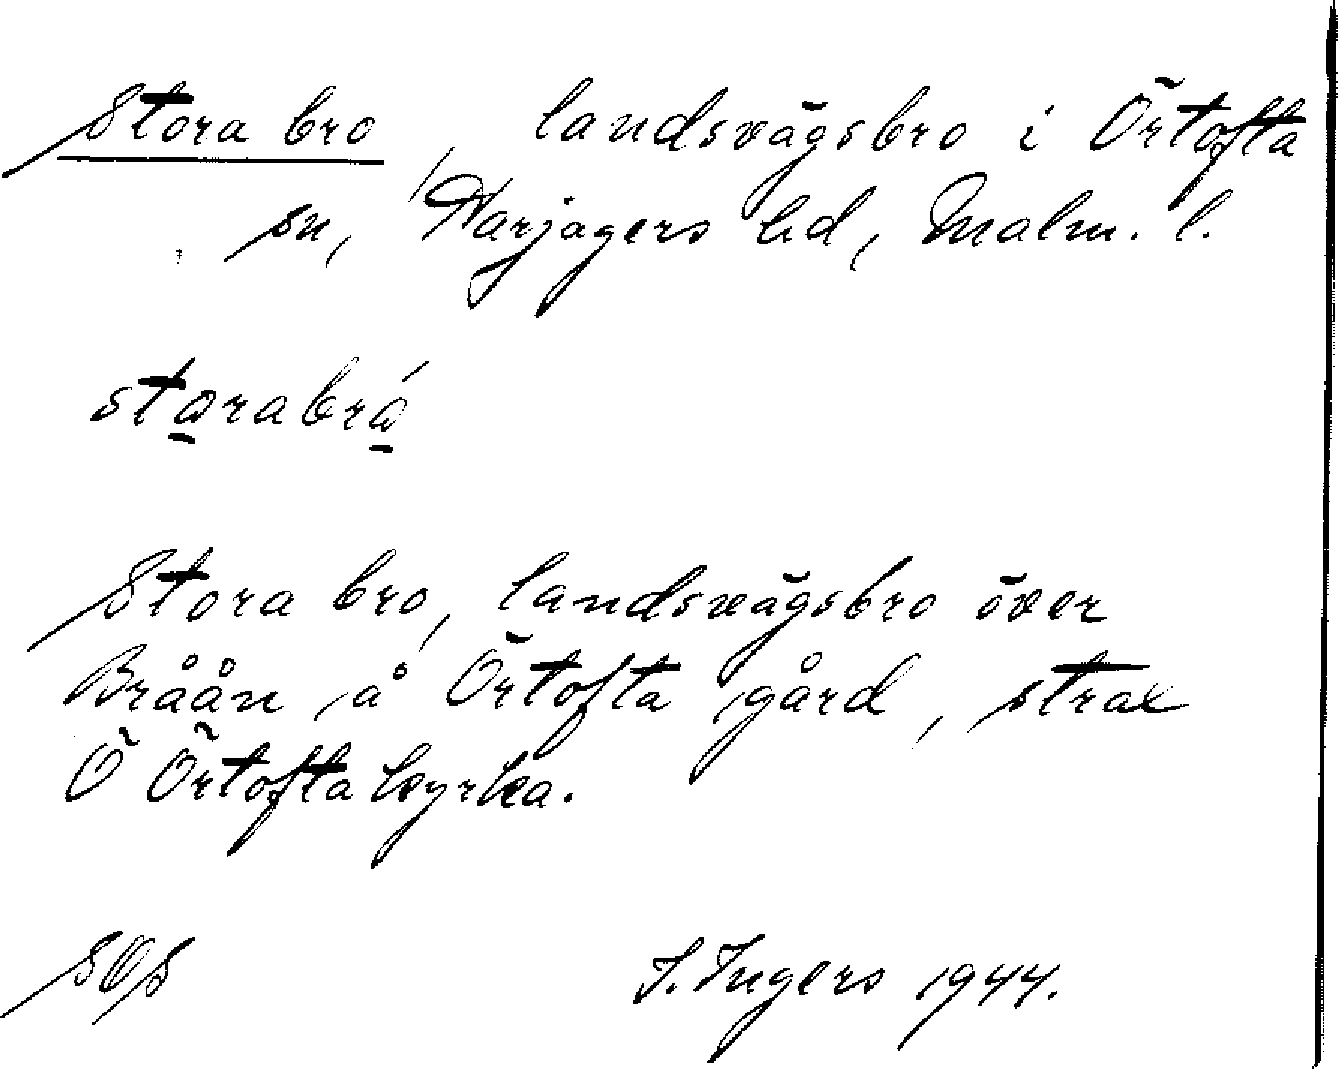 Stora bro, landsvägsbro i Örtofta
sn, Harjagers hd, Malm. l.
storabró
Stora bro, landsvägsbro över
Bråån å Örtofta gård, strax
Ö Örtofta kyrka.
I. Ingers 1944.